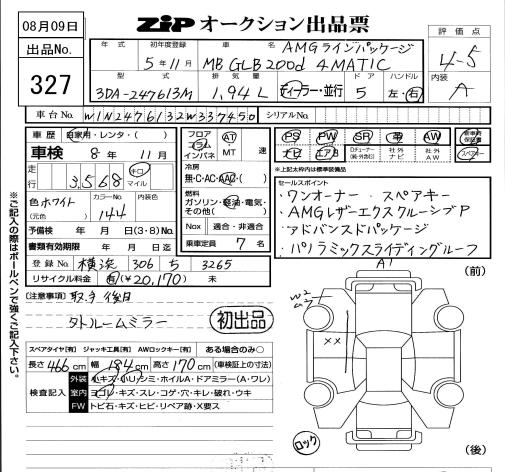 08月09日
ZiP オークション出品票
評価点
4-5
出品No.
327
年式 初年度登録 車名
AMGラインパッケージ
5年11月 MB GLB200d 4MATIC
内装
A
型式 排気量 ドア ハンドル
3DA-247613M 1,94L ディーラー・並行 5 左・右
車台No. W1N2476132W337450 シリアルNo.
車歴 自家用・レンタ・( )
車検 8年 11月
走行 3,568 キロ マイル
フロア コラム インパネ AT MT 速
冷房
無・C・AC・AAC・( )
PS PW SR 革 AW 新車時保証書
ナビ エアB Dチューナー(純・外含む) 社外ナビ 社外AW スペアキー
※上記太枠内は標準装備品
色 ホワイト (元色) カラーNo. 144 内装色
燃料
ガソリン・軽油・電気・その他( )
予備検 年 月 日(3・8)No.
Nox 適合・非適合
書類有効期限 年 月 日迄
乗車定員 7名
登録No 横浜 306 ち 3265
リサイクル料金 有(¥20,170) 未
セールスポイント
・ワンオーナー ・スペアキー
・AMGレザーエクスクルーシブP
・アドバンスドパッケージ
・パノラミックスライディングルーフ
[注意事項] 取予後日
タトルームミラー
初出品
A1
(前)
W2
××
スペアタイヤ[有] ジャッキ工具[有] AWロックキー[有] ある場合のみ○
長さ 466cm 幅 184cm 高さ 170cm (車検証上の寸法)
検査記入
外装 小キズ・小U・シミ・ホイルA・ドアミラー(A・ワレ)
室内 ヨゴレ・キズ・スレ・コゲ・穴・キレ・破れ・ウキ
FW トビ石・キズ・ヒビ・リペア跡・X要ス
ロック
(後)
※ご記入の際はボールペンで強くご記入下さい。